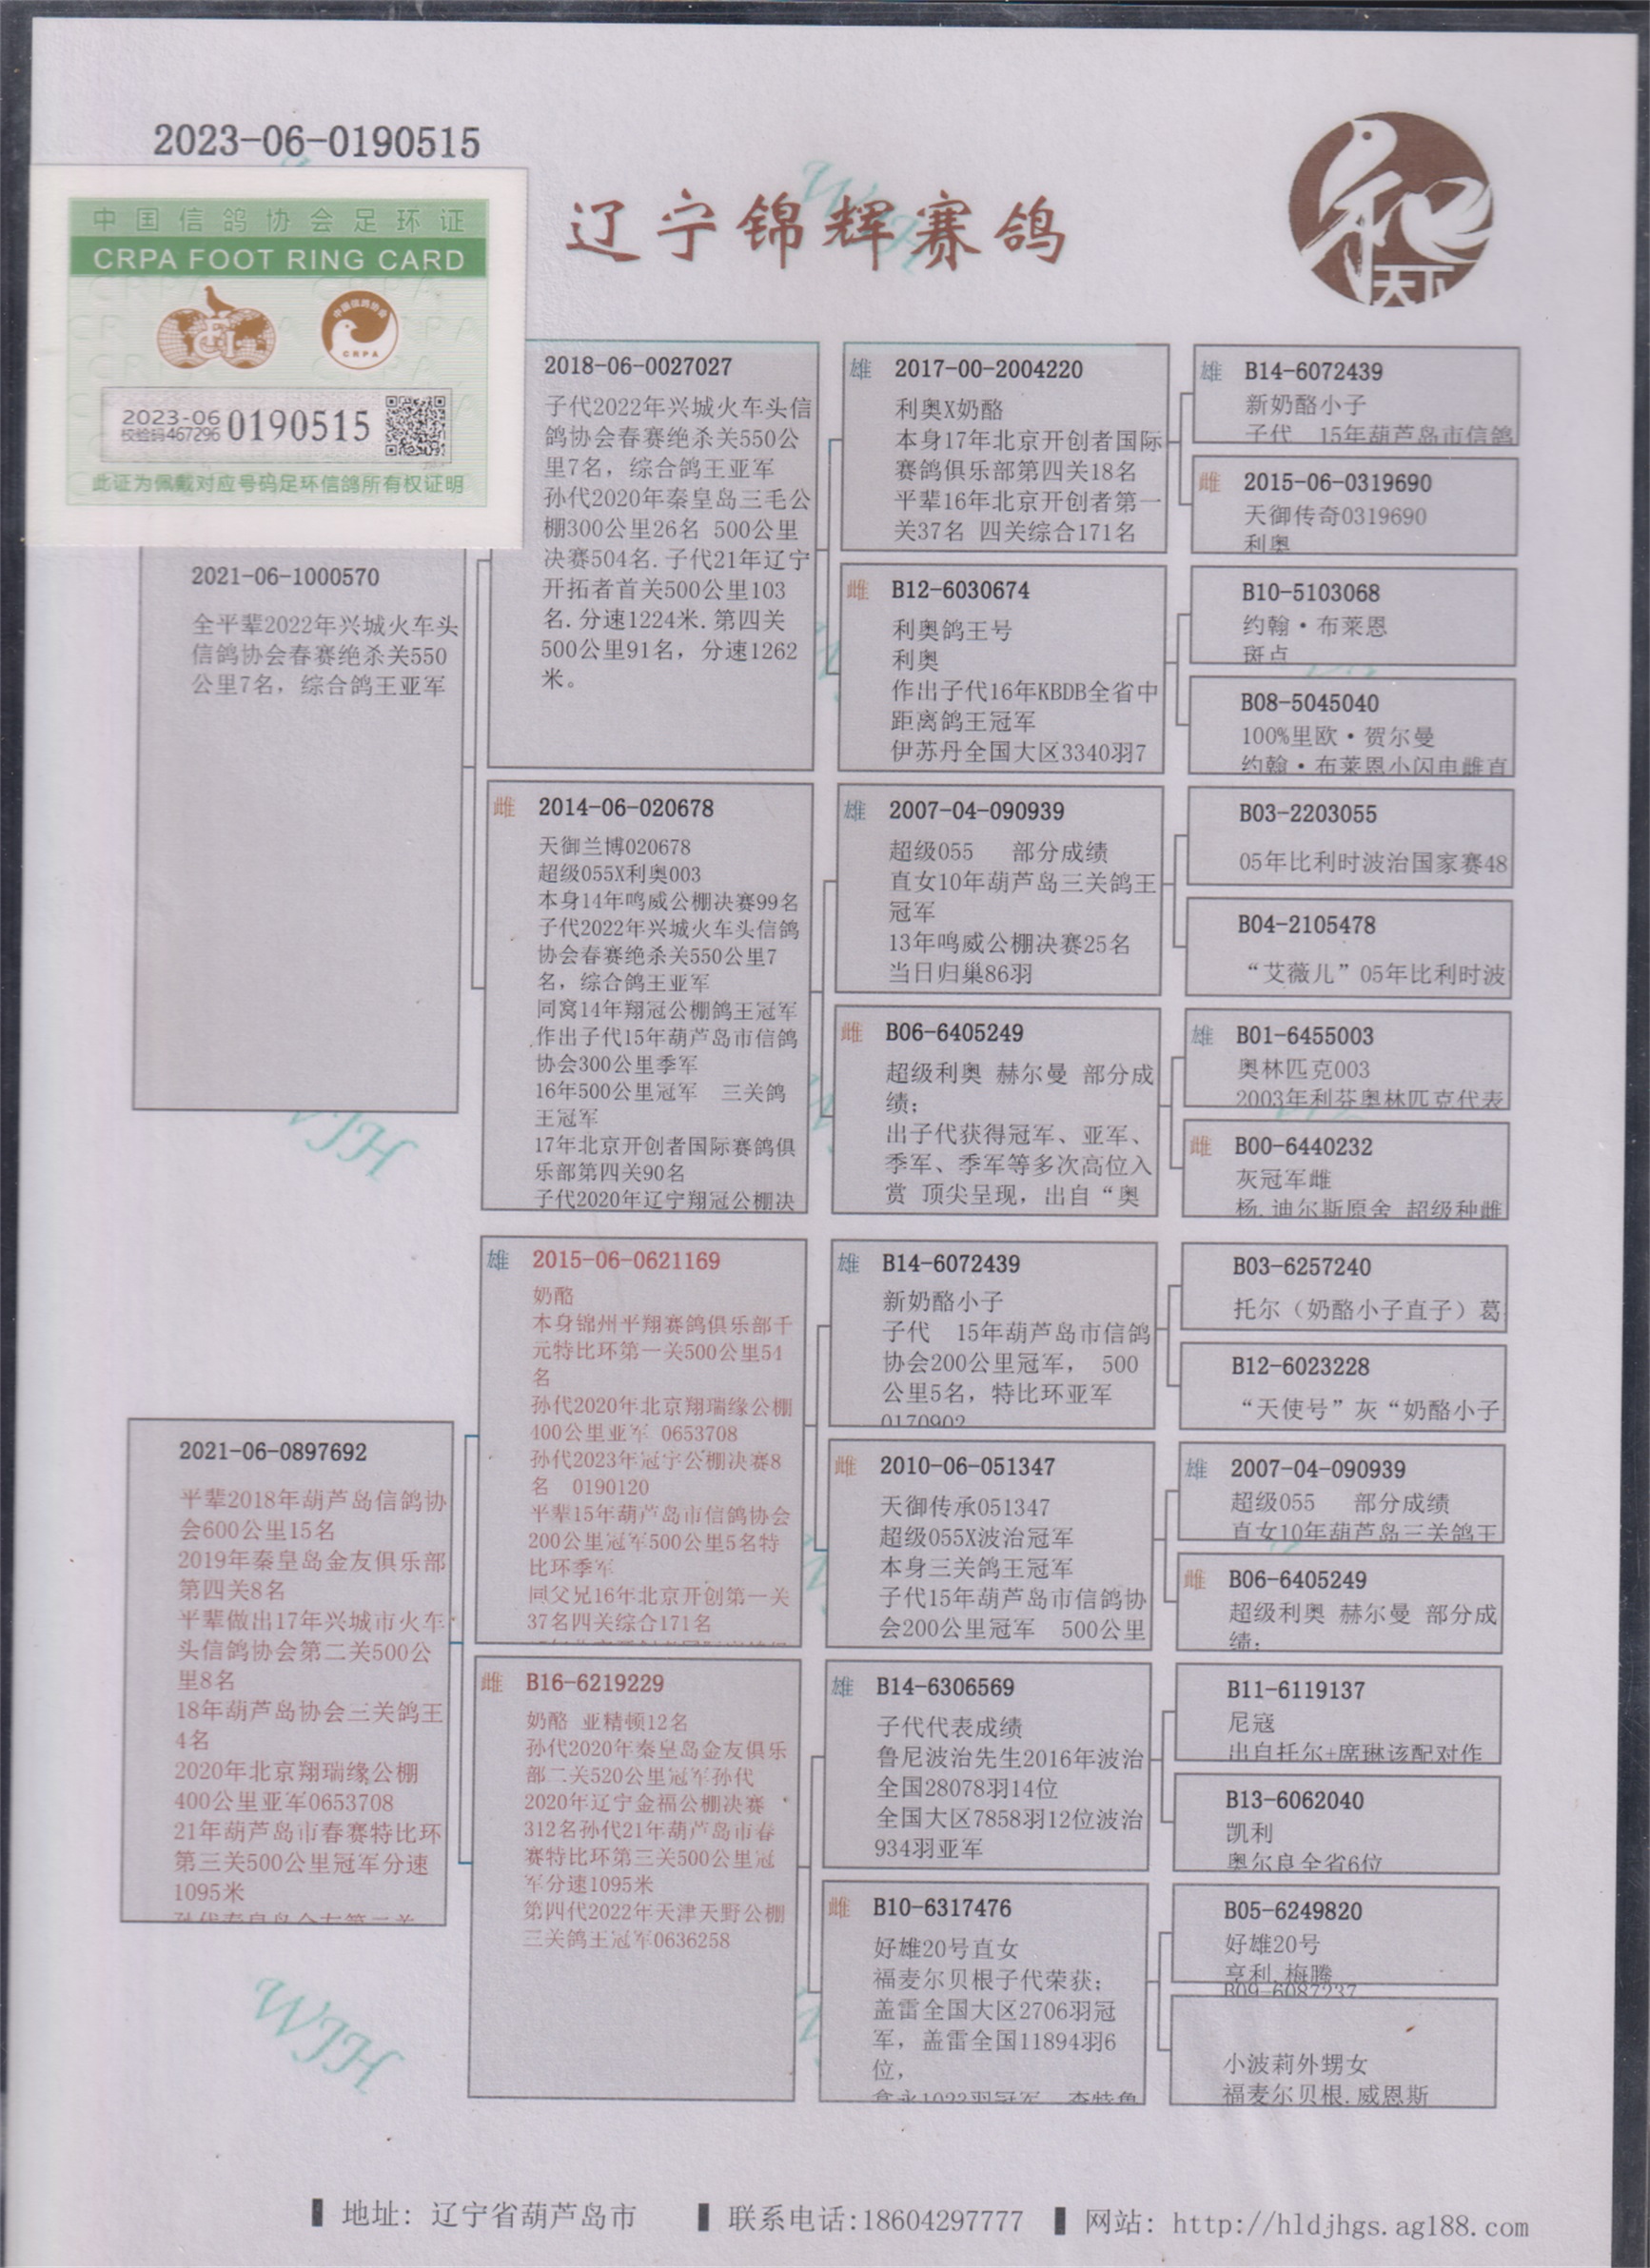 2023-06-0190515
中国信鸽协会足环证
CRPA FOOT RING CARD
中国信鸽协会
CRPA
2023-06
校验码467296
0190515
此证为佩戴对应号码足环信鸽所有权证明
辽宁锦辉赛鸽
和
天下
2021-06-1000570
全平辈2022年兴城火车头
信鸽协会春赛绝杀关550
公里7名，综合鸽王亚军
2018-06-0027027
子代2022年兴城火车头信
鸽协会春赛绝杀关550公
里7名，综合鸽王亚军
孙代2020年秦皇岛三毛公
棚300公里26名 500公里
决赛504名.子代21年辽宁
开拓者首关500公里103
名.分速1224米.第四关
500公里91名，分速1262
米。
雌 2014-06-020678
天御兰博020678
超级055X利奥003
本身14年鸣威公棚决赛99名
子代2022年兴城火车头信鸽
协会春赛绝杀关550公里7
名，综合鸽王亚军
同窝14年翔冠公棚鸽王冠军
作出子代15年葫芦岛市信鸽
协会300公里季军
16年500公里冠军 三关鸽
王冠军
17年北京开创者国际赛鸽俱
乐部第四关90名
子代2020年辽宁翔冠公棚决
雄 2017-00-2004220
利奥X奶酪
本身17年北京开创者国际
赛鸽俱乐部第四关18名
平辈16年北京开创者第一
关37名 四关综合171名
雌 B12-6030674
利奥鸽王号
利奥
作出子代16年KBDB全省中
距离鸽王冠军
伊苏丹全国大区3340羽7
雄 2007-04-090939
超级055 部分成绩
直女10年葫芦岛三关鸽王
冠军
13年鸣威公棚决赛25名
当日归巢86羽
雌 B06-6405249
超级利奥 赫尔曼 部分成
绩；
出子代获得冠军、亚军、
季军、季军等多次高位入
赏 顶尖呈现，出自“奥
雄 B14-6072439
新奶酪小子
子代 15年葫芦岛市信鸽
雌 2015-06-0319690
天御传奇0319690
利奥
B10-5103068
约翰·布莱恩
斑点
B08-5045040
100%里欧·贺尔曼
约翰·布莱恩小闪电雌直
B03-2203055
05年比利时波治国家赛48
B04-2105478
“艾薇儿”05年比利时波
雄 B01-6455003
奥林匹克003
2003年利芬奥林匹克代表
雌 B00-6440232
灰冠军雌
杨.迪尔斯原舍 超级种雌
2021-06-0897692
平辈2018年葫芦岛信鸽协
会600公里15名
2019年秦皇岛金友俱乐部
第四关8名
平辈做出17年兴城市火车
头信鸽协会第二关500公
里8名
18年葫芦岛协会三关鸽王
4名
2020年北京翔瑞缘公棚
400公里亚军0653708
21年葫芦岛市春赛特比环
第三关500公里冠军分速
1095米
孙代秦皇岛金友第二关
雄 2015-06-0621169
奶酪
本身锦州平翔赛鸽俱乐部千
元特比环第一关500公里54
名
孙代2020年北京翔瑞缘公棚
400公里亚军 0653708
孙代2023年冠宇公棚决赛8
名 0190120
平辈15年葫芦岛市信鸽协会
200公里冠军500公里5名特
比环季军
同父兄16年北京开创第一关
37名四关综合171名
雌 B16-6219229
奶酪 亚精顿12名
孙代2020年秦皇岛金友俱乐
部二关520公里冠军孙代
2020年辽宁金福公棚决赛
312名孙代21年葫芦岛市春
赛特比环第三关500公里冠
军分速1095米
第四代2022年天津天野公棚
三关鸽王冠军0636258
雄 B14-6072439
新奶酪小子
子代 15年葫芦岛市信鸽
协会200公里冠军， 500
公里5名，特比环亚军
0170902
雌 2010-06-051347
天御传承051347
超级055X波治冠军
本身三关鸽王冠军
子代15年葫芦岛市信鸽协
会200公里冠军 500公里
雄 B14-6306569
子代代表成绩
鲁尼波治先生2016年波治
全国28078羽14位
全国大区7858羽12位波治
934羽亚军
雌 B10-6317476
好雄20号直女
福麦尔贝根子代荣获；
盖雷全国大区2706羽冠
军，盖雷全国11894羽6
位，
B03-6257240
托尔（奶酪小子直子）葛
B12-6023228
“天使号”灰“奶酪小子
雄 2007-04-090939
超级055 部分成绩
直女10年葫芦岛三关鸽王
雌 B06-6405249
超级利奥 赫尔曼 部分成
绩；
B11-6119137
尼寇
出自托尔+席琳该配对作
B13-6062040
凯利
奥尔良全省6位
B05-6249820
好雄20号
亨利.梅腾
B09-6087237
小波莉外甥女
福麦尔贝根.威恩斯
WJH
WJH
地址: 辽宁省葫芦岛市 联系电话:18604297777 网站: http://hldjhgs.ag188.com